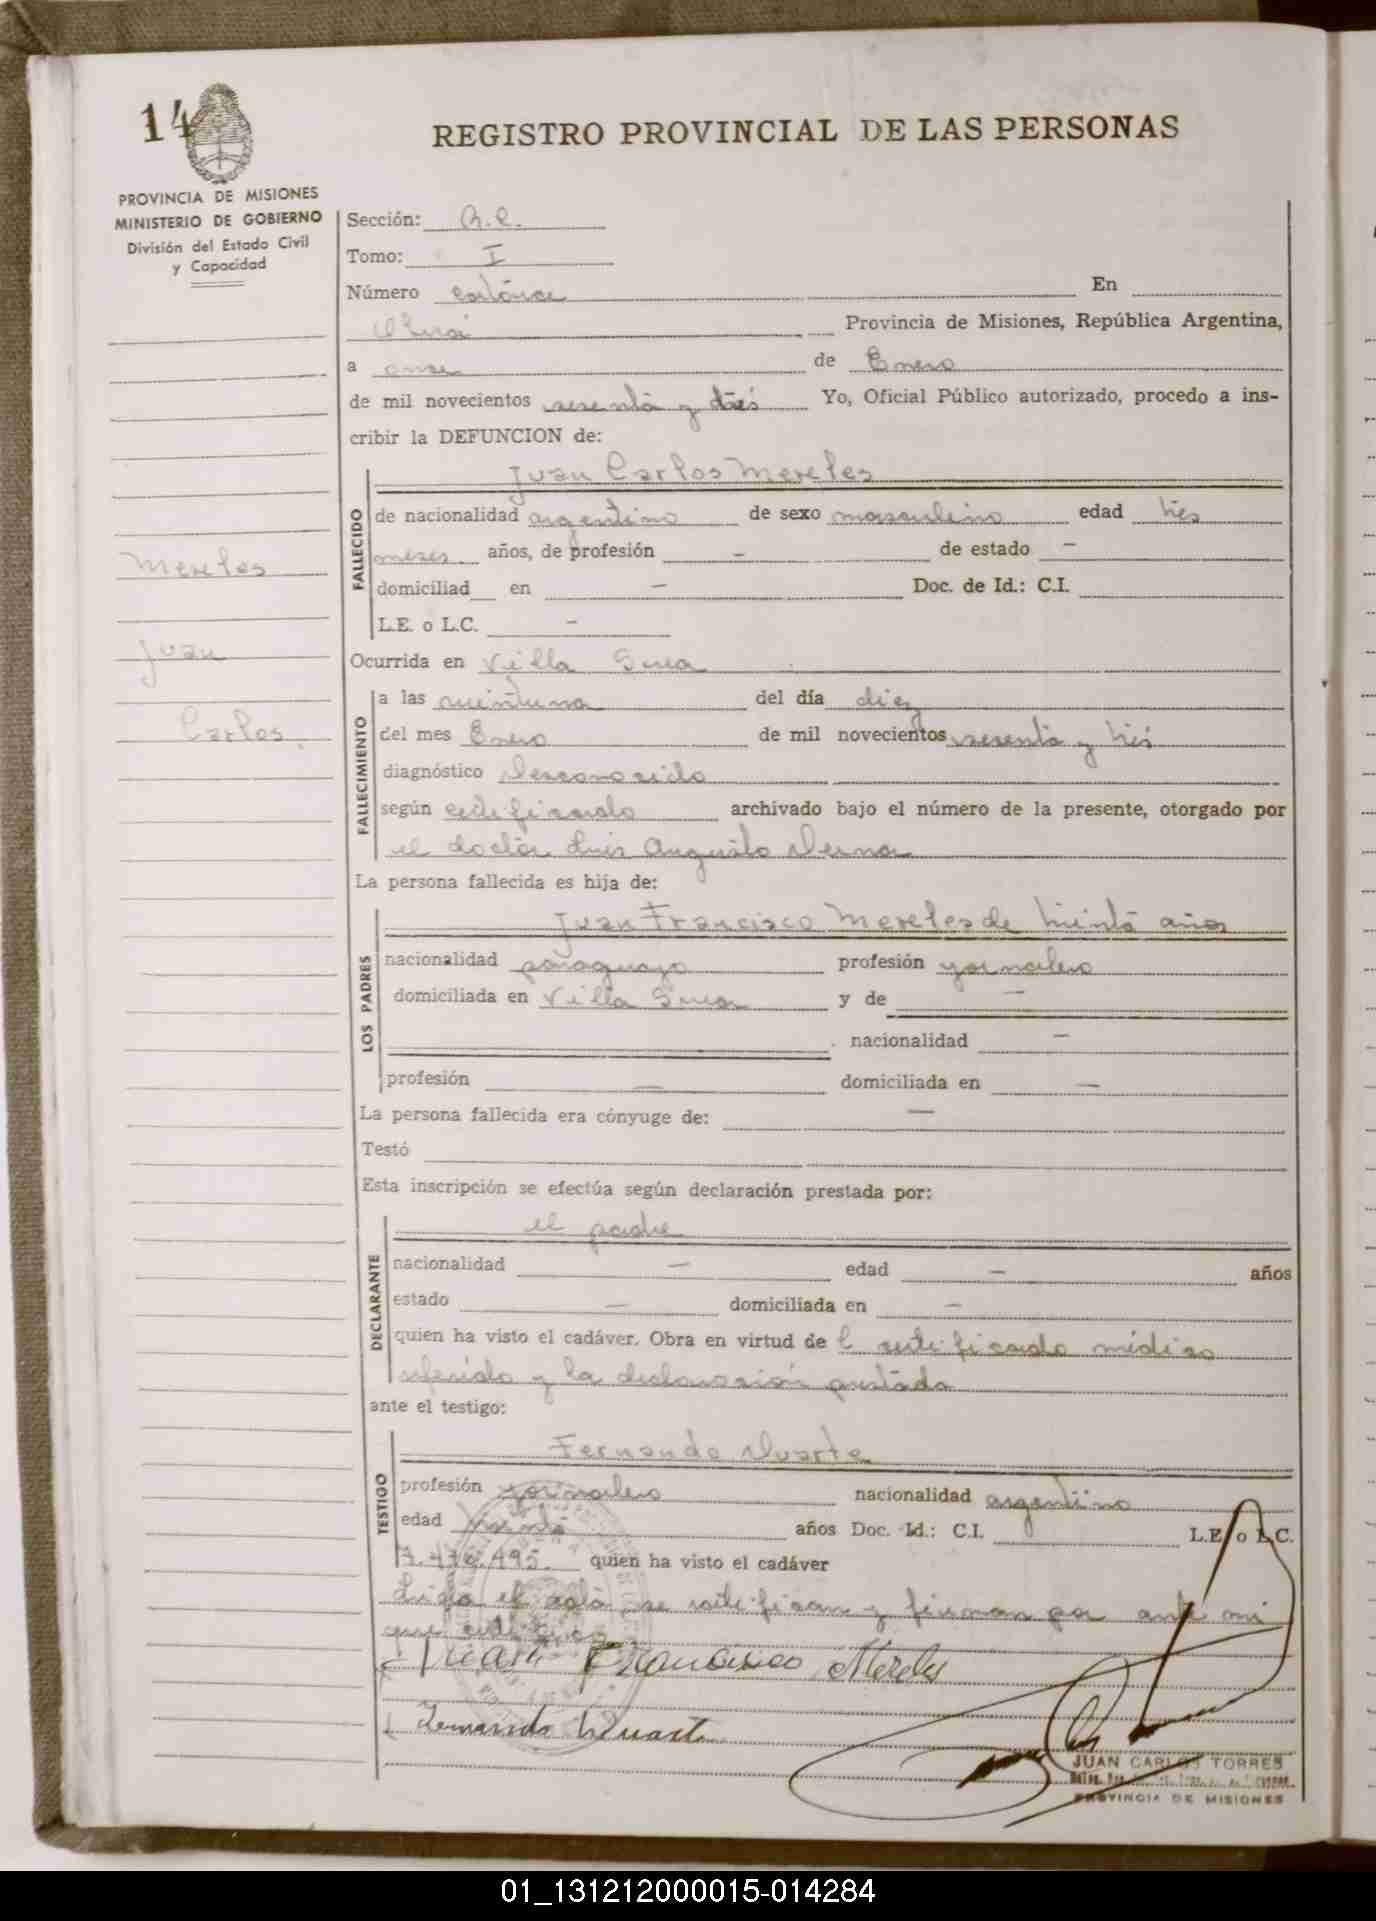 14
REGISTRO PROVINCIAL DE LAS PERSONAS
PROVINCIA DE MISIONES
MINISTERIO DE GOBIERNO
División del Estado Civil
y Capacidad
Sección: R.C.
Tomo: I
Número catórce En
Oberá Provincia de Misiones, República Argentina,
a once de Enero
de mil novecientos sesenta y trés Yo, Oficial Público autorizado, procedo a ins-
cribir la DEFUNCION de:
Juan Carlos Mereles
FALLECIDO
de nacionalidad argentino de sexo masculino edad trés
meses años, de profesión — de estado —
domiciliad en — Doc. de Id.: C.I.
L.E. o L.C. —
Mereles
Juan
Carlos.
Ocurrida en Villa
FALLECIMIENTO
a las veintuna del día diez
del mes Enero de mil novecientos sesenta y trés
diagnóstico Desconocido
según certificado archivado bajo el número de la presente, otorgado por
el doctor Luis Augusto
La persona fallecida es hija de:
LOS PADRES
Juan Francisco Mereles de treinta años
nacionalidad paraguayo profesión jornalero
domiciliada en Villa y de —
nacionalidad —
profesión — domiciliada en —
La persona fallecida era cónyuge de: —
Testó
Esta inscripción se efectúa según declaración prestada por:
DECLARANTE
el padre
nacionalidad — edad — años
estado — domiciliada en —
quien ha visto el cadáver. Obra en virtud de l certificado médico
referido y la declaración prestada
ante el testigo:
TESTIGO
Fernando Duarte
profesión jornalero nacionalidad argentino
edad treinta años Doc. Id.: C.I. L.E. o L.C.
7.476.495. quien ha visto el cadáver
Leida el acta, se ratifican y firman por ante mi
que certifico
Juan Francisco Mereles
Fernando Duarte
JUAN CARLOS TORRES
PROVINCIA DE MISIONES
01_131212000015-014284